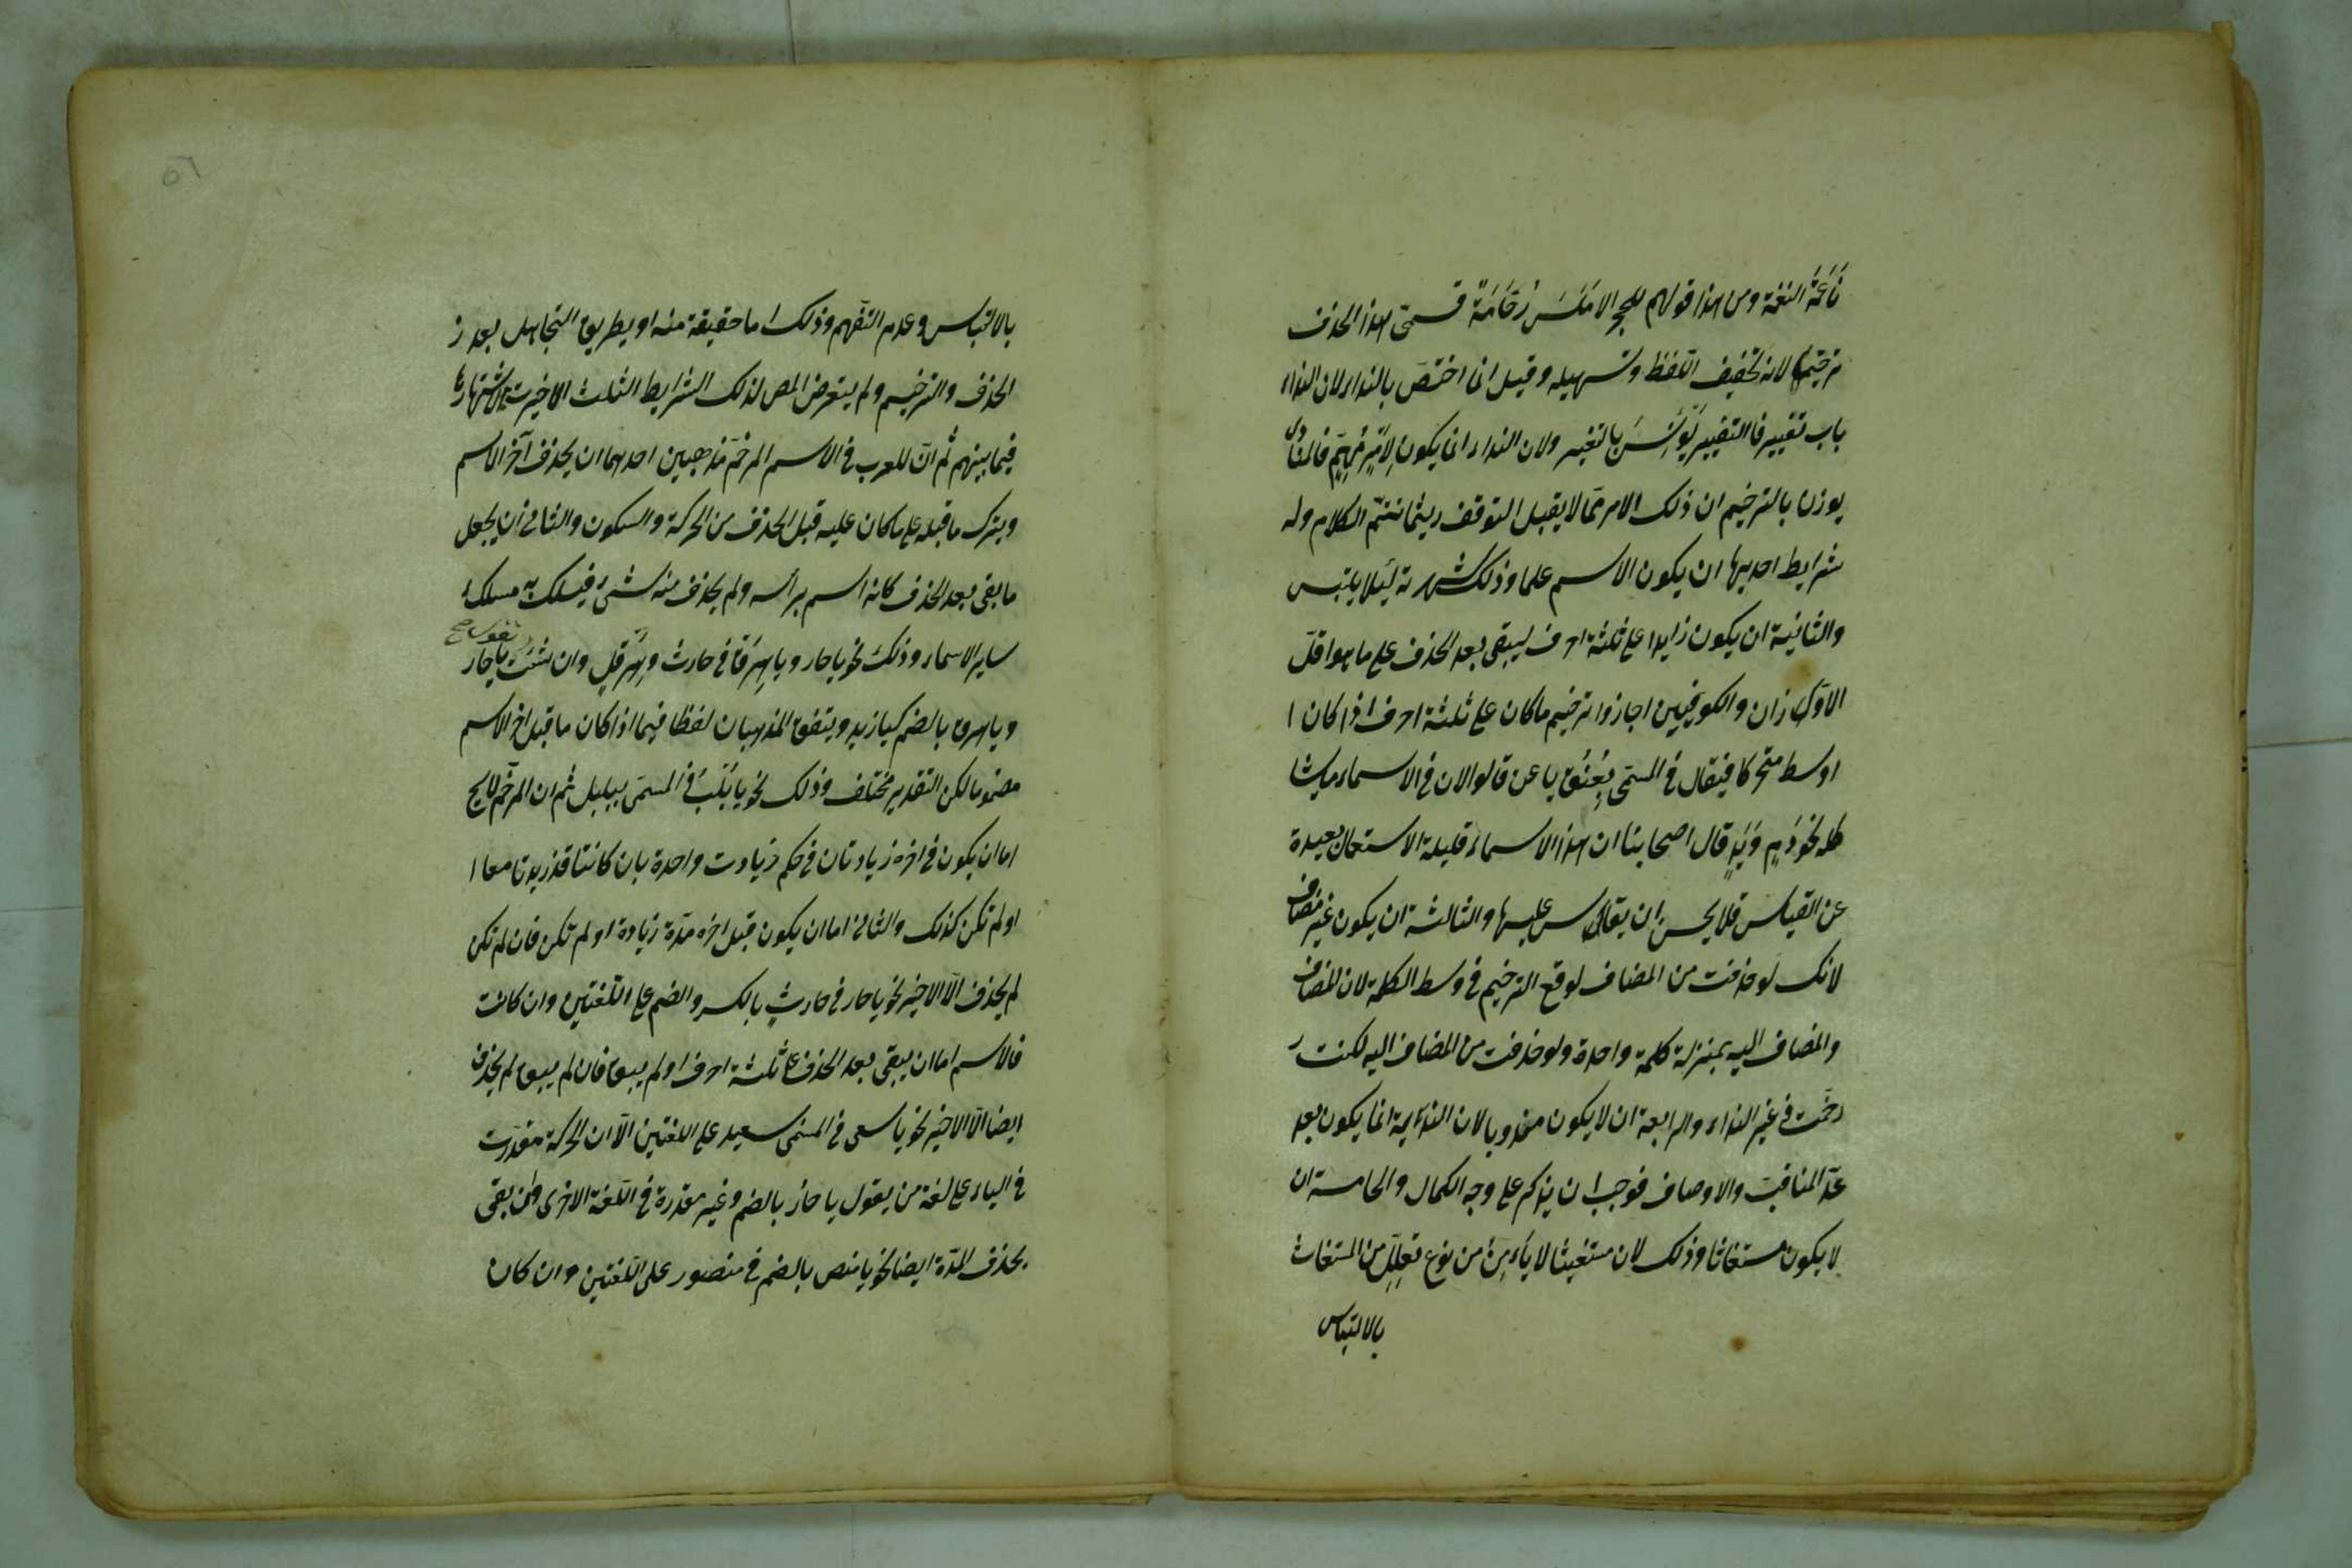 ناعمة النغمة ومن هذا قولهم للحجر الاملس رُخَامَةٌ فسمّى هذا الحذف
ترخيما لانه تخفيف اللفظ وتسهيله وقيل انما اختصّ بالنداء لان النداء
باب تغيير فالتغيير يُؤنِسُ بالتغيير ولان النداء انما يكون لِاَمْرٍ مُهِمٍّ فالمنادى
يوذن بالترخيم ان ذلك الامر ممّا لا يقبل التوقف ريثما تتمّ الكلام وله
شرايط احديها ان يكون الاسم علما وذلك لشهرته ليلا يلتبس
والثانية ان يكون زايدا على ثلثة احرف ليبقى بعد الحذف على ما هو اقلّ
الاوزان والكوفيين اجازوا ترخيم ما كان على ثلثة احرف اذا كان ا
اوسط متحركا فيقال في المسمّى بِعُنُقٍ يا عن قالوا لان في الاسماء ما يشا
كله نحو دَمٍ وَيَدٍ قال اصحابنا ان هذا الاسماء قليلة الاستعمال بعيدة
عن القياس فلا يحسن ان يقاس عليها والثالثة ان يكون غير مضاف
لانك لو حذفت من المضاف لوقع الترخيم في وسط الكلمة لان المضاف
والمضاف اليه بمنزلة كلمة واحدة ولو حذفت من المضاف اليه لكنت ر
رخّمت في غير النداء والرابعة ان لا يكون مندوبا لان الندبة انما يكون بعد
عدّ المناقب والاوصاف فوجب ان يذكر على وجه الكمال والخامسة ان
لا يكون مستغاثا وذلك لان مستغيثا لا يأمن من نوع تعلل من المستغاث
بالالتباس
٥٦
بالالتباس وعدم التفهم وذلك اما حقيقة منه او بطريق التجاهل بعد ز
الحذف والترخيم ولم يتعرض المص لذلك الشرايط الثلث الاخيرت لاشتهارها
فيما بينهم ثم انّ للعرب في الاسم المرخّم مذهبين احدهما ان يحذف آخر الاسم
ويترك ما قبله على ما كان عليه قبل الحذف من الحركة والسكون والثاني أن يجعل
ما بقى بعد الحذف كانه اسم برأسه ولم يحذف منه شئ فيسلك به مسلك
ساير الاسماء وذلك نحو يا حار ويا هِرَقْ في حارث وهِرَقْلٍ وان شئت يا حار
تقول صح
ويا هرق بالضم كيا زيد ويتفق المذهبان لفظا فيما اذا كان ما قبل اخر الاسم
مضموما لكن التقدير مختلف وذلك نحو يا بُلْبُ في المسمّى ببلبل ثم ان المرخّم لا يخ
اما ان يكون في اخره زيادتان في حكم زيادت واحدة بان كانتا قد زيدتا معا ا
او لم تكن كذلك والثاني اما ان يكون قبل اخره مدّة زيادة او لم تكن فان لم تكن
لم يحذف الّا الاخير نحو يا حار في حارثٍ بالكسر والضم على اللغتين وان كانت
فالاسم اما ان يبقى بعد الحذف على ثلثة احرف او لم يبق فان لم يبق لم يحذف
ايضا الّا الاخير نحو يا سعى في المسمّى سعيد على اللغتين الّا ان الحركة مقدّرت
في الياء على لغة من يقول يا حارُ بالضم وغير مقدرة في اللغة الاخرى وان بقى
يحذف المدّة ايضا نحو يا منص بالضم في منصور على اللغتين وان كان